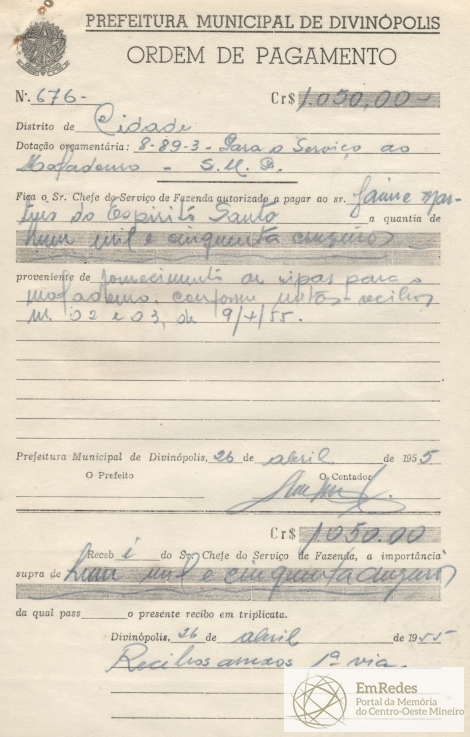 PREFEITURA MUNICIPAL DE DIVINÓPOLIS
ORDEM DE PAGAMENTO
N.º 676- Cr$ 1.050,00-
Distrito de Cidade
Dotação orçamentária: 8-89-3- Para o Serviço ao
Matadouro - S.M.D.
Fica o Sr. Chefe do Serviço de Fazenda autorizado a pagar ao sr. Jaime Mar-
tins do Espirito Santo a quantia de
hum mil e cinquenta cruzeiros
proveniente de fornecimento de ripas para o
matadouro, conforme notas-recibos
nr. 02 e 03, de 9/4/55.
Prefeitura Municipal de Divinópolis, 26 de abril de 1955
O Prefeito O Contador
Cr$ 1050.00
Receb i do Sr. Chefe do Serviço de Fazenda, a importância
supra de hum mil e cinquenta cruzeiros
da qual pass o presente recibo em triplicata.
Divinópolis, 26 de abril de 1955
Recibos anexos 1ª via.
EmRedes
Portal da Memória
do Centro-Oeste Mineiro